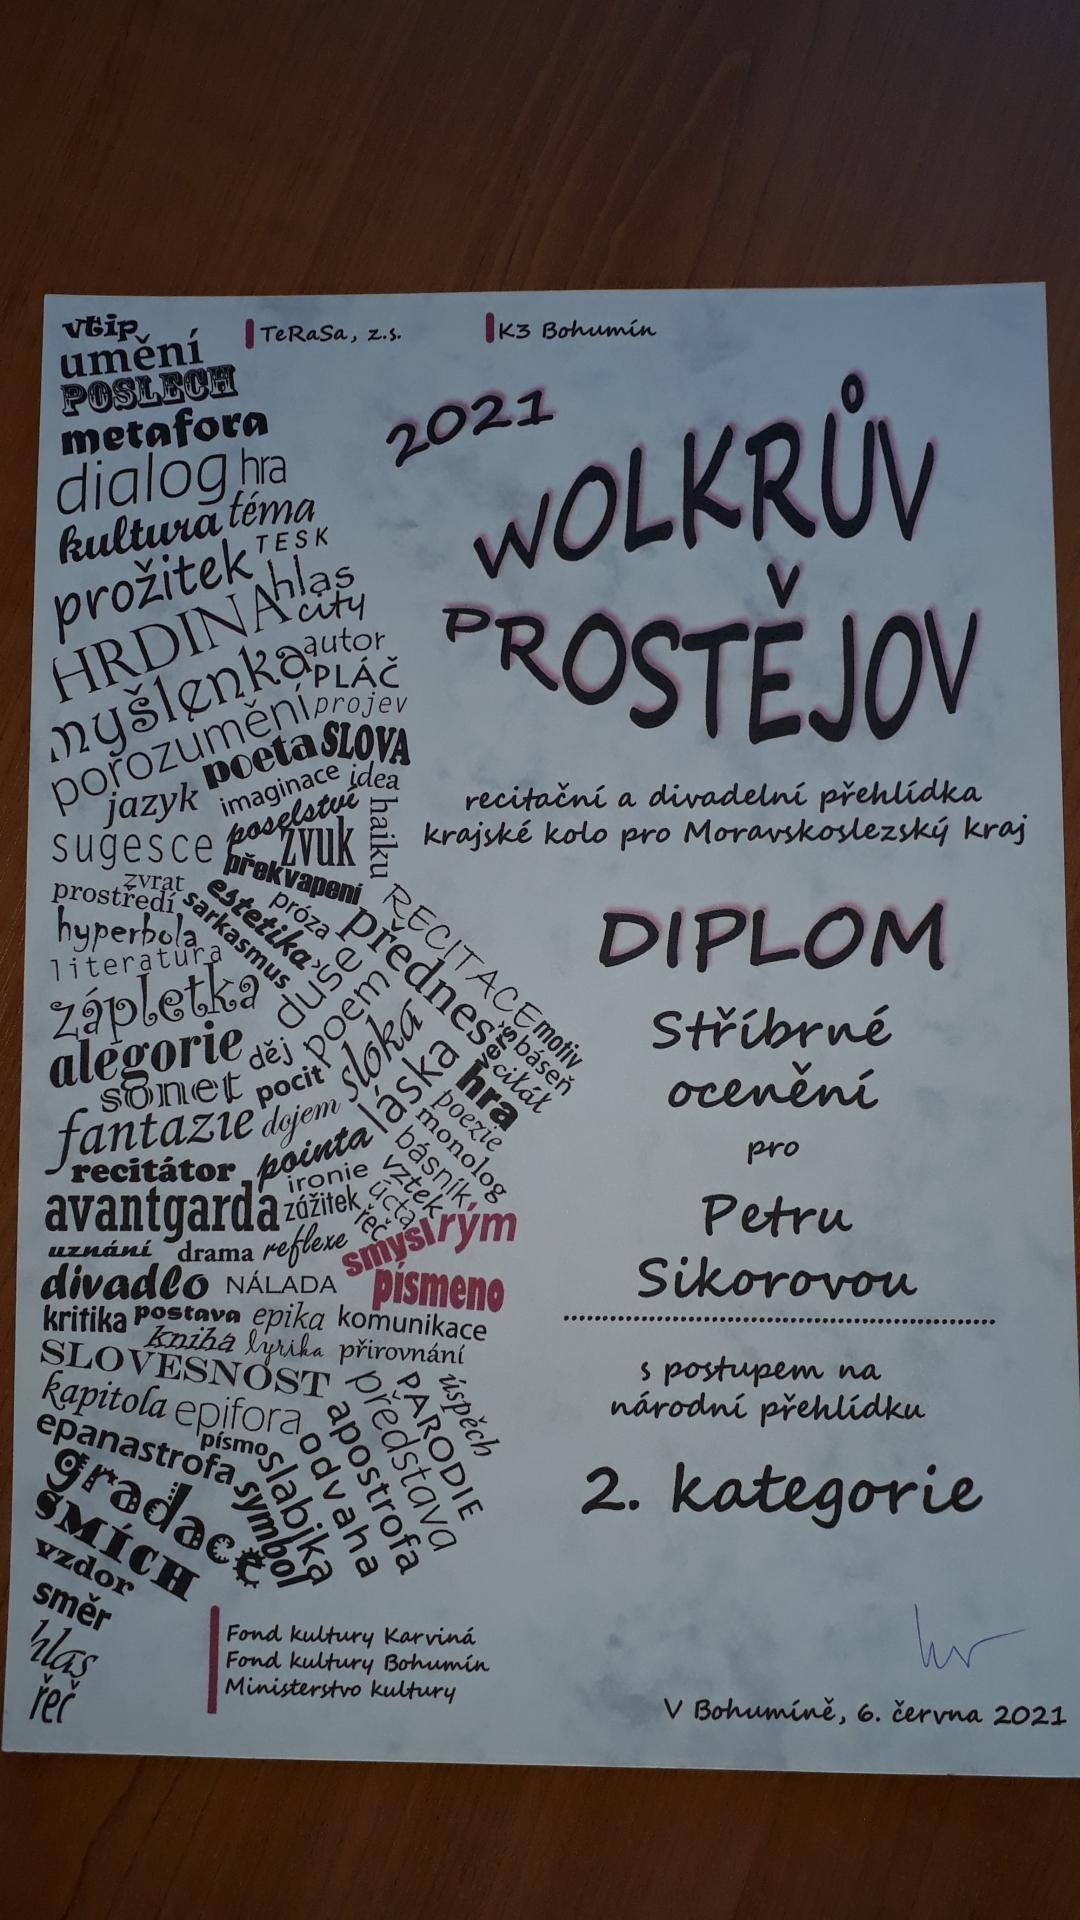 TeRaSa, z.s.
K3 Bohumín
2021
WOLKRŮV
PROSTĚJOV
recitační a divadelní přehlídka
krajské kolo pro Moravskoslezský kraj
DIPLOM
Stříbrné
ocenění
pro
Petru
Sikorovou
s postupem na
národní přehlídku
2. kategorie
V Bohumíně, 6. června 2021
vtip
umění
POSLECH
metafora
dialog hra
kultura téma
prožitek TESK
HRDINA hlas
city
myšlenka autor
PLÁČ
porozumění projev
poeta SLOVA
jazyk imaginace idea
sugesce poselství haiku
zvuk
překvapení
zvrat
prostředí sarkasmus estetika próza přednes RECITACE
hyperbola
literatura
zápletka duše
alegorie děj poem sloka verš motiv
sonet pocit láska hra citát báseň
fantazie dojem poezie
recitátor pointa básník monolog
ironie vztek
avantgarda zážitek řeč úcta
uznání drama reflexe smysl rým
divadlo NÁLADA písmeno
kritika postava epika komunikace
kniha lyrika přirovnání
SLOVESNOST
kapitola epifora představa PARODIE úspěch
epanastrofa písmo odvaha apostrofa
gradace symbol slabika
SMÍCH
vzdor
směr
hlas
řeč
Fond kultury Karviná
Fond kultury Bohumín
Ministerstvo kultury